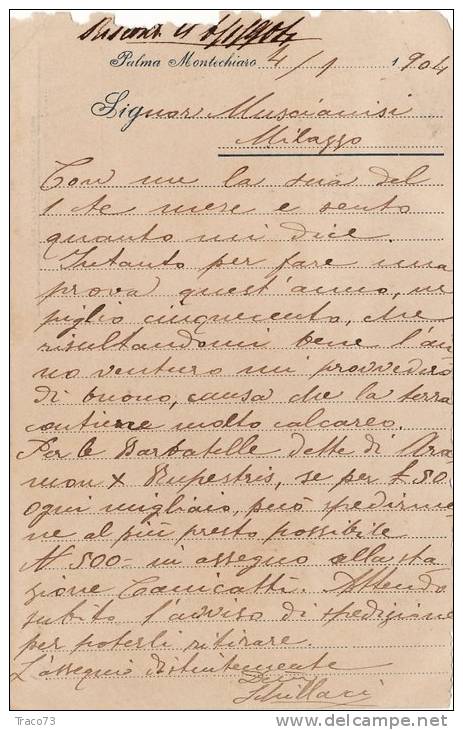 Palma Montechiaro 4/1 1904
Signor Muscianisi
Milazzo
Con me la sua del
1 te mere e sento
quanto mi dice.
Intanto per fare una
prova quest'anno, ne
piglio cinquecento, che
risultandomi bene l'an
no venturo mi provvederò
di buono, causa che la terra
contiene molto calcareo.
Per le Barbatelle dette di Ara
mon x Rupestris, se per £ 50
ogni migliaio, può spedirme
ne al più presto possibile
N° 500- in assegno alla sta
zione Canicattì. Attendo
subito l'avviso di spedizione
per poterli ritirare.
L'assequio distintamente
Schillaci
Traco73